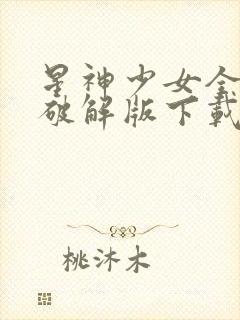 星神少女全
破解版下载
桃沐木